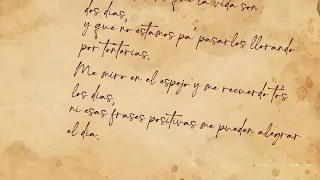 que la vida son
dos días,
y que no estamos pa' pasarlos llorando
por tonterías.
Me miro en el espejo y me recuerdo to's
los días,
ni esas frases positivas me pueden alegrar
el día.